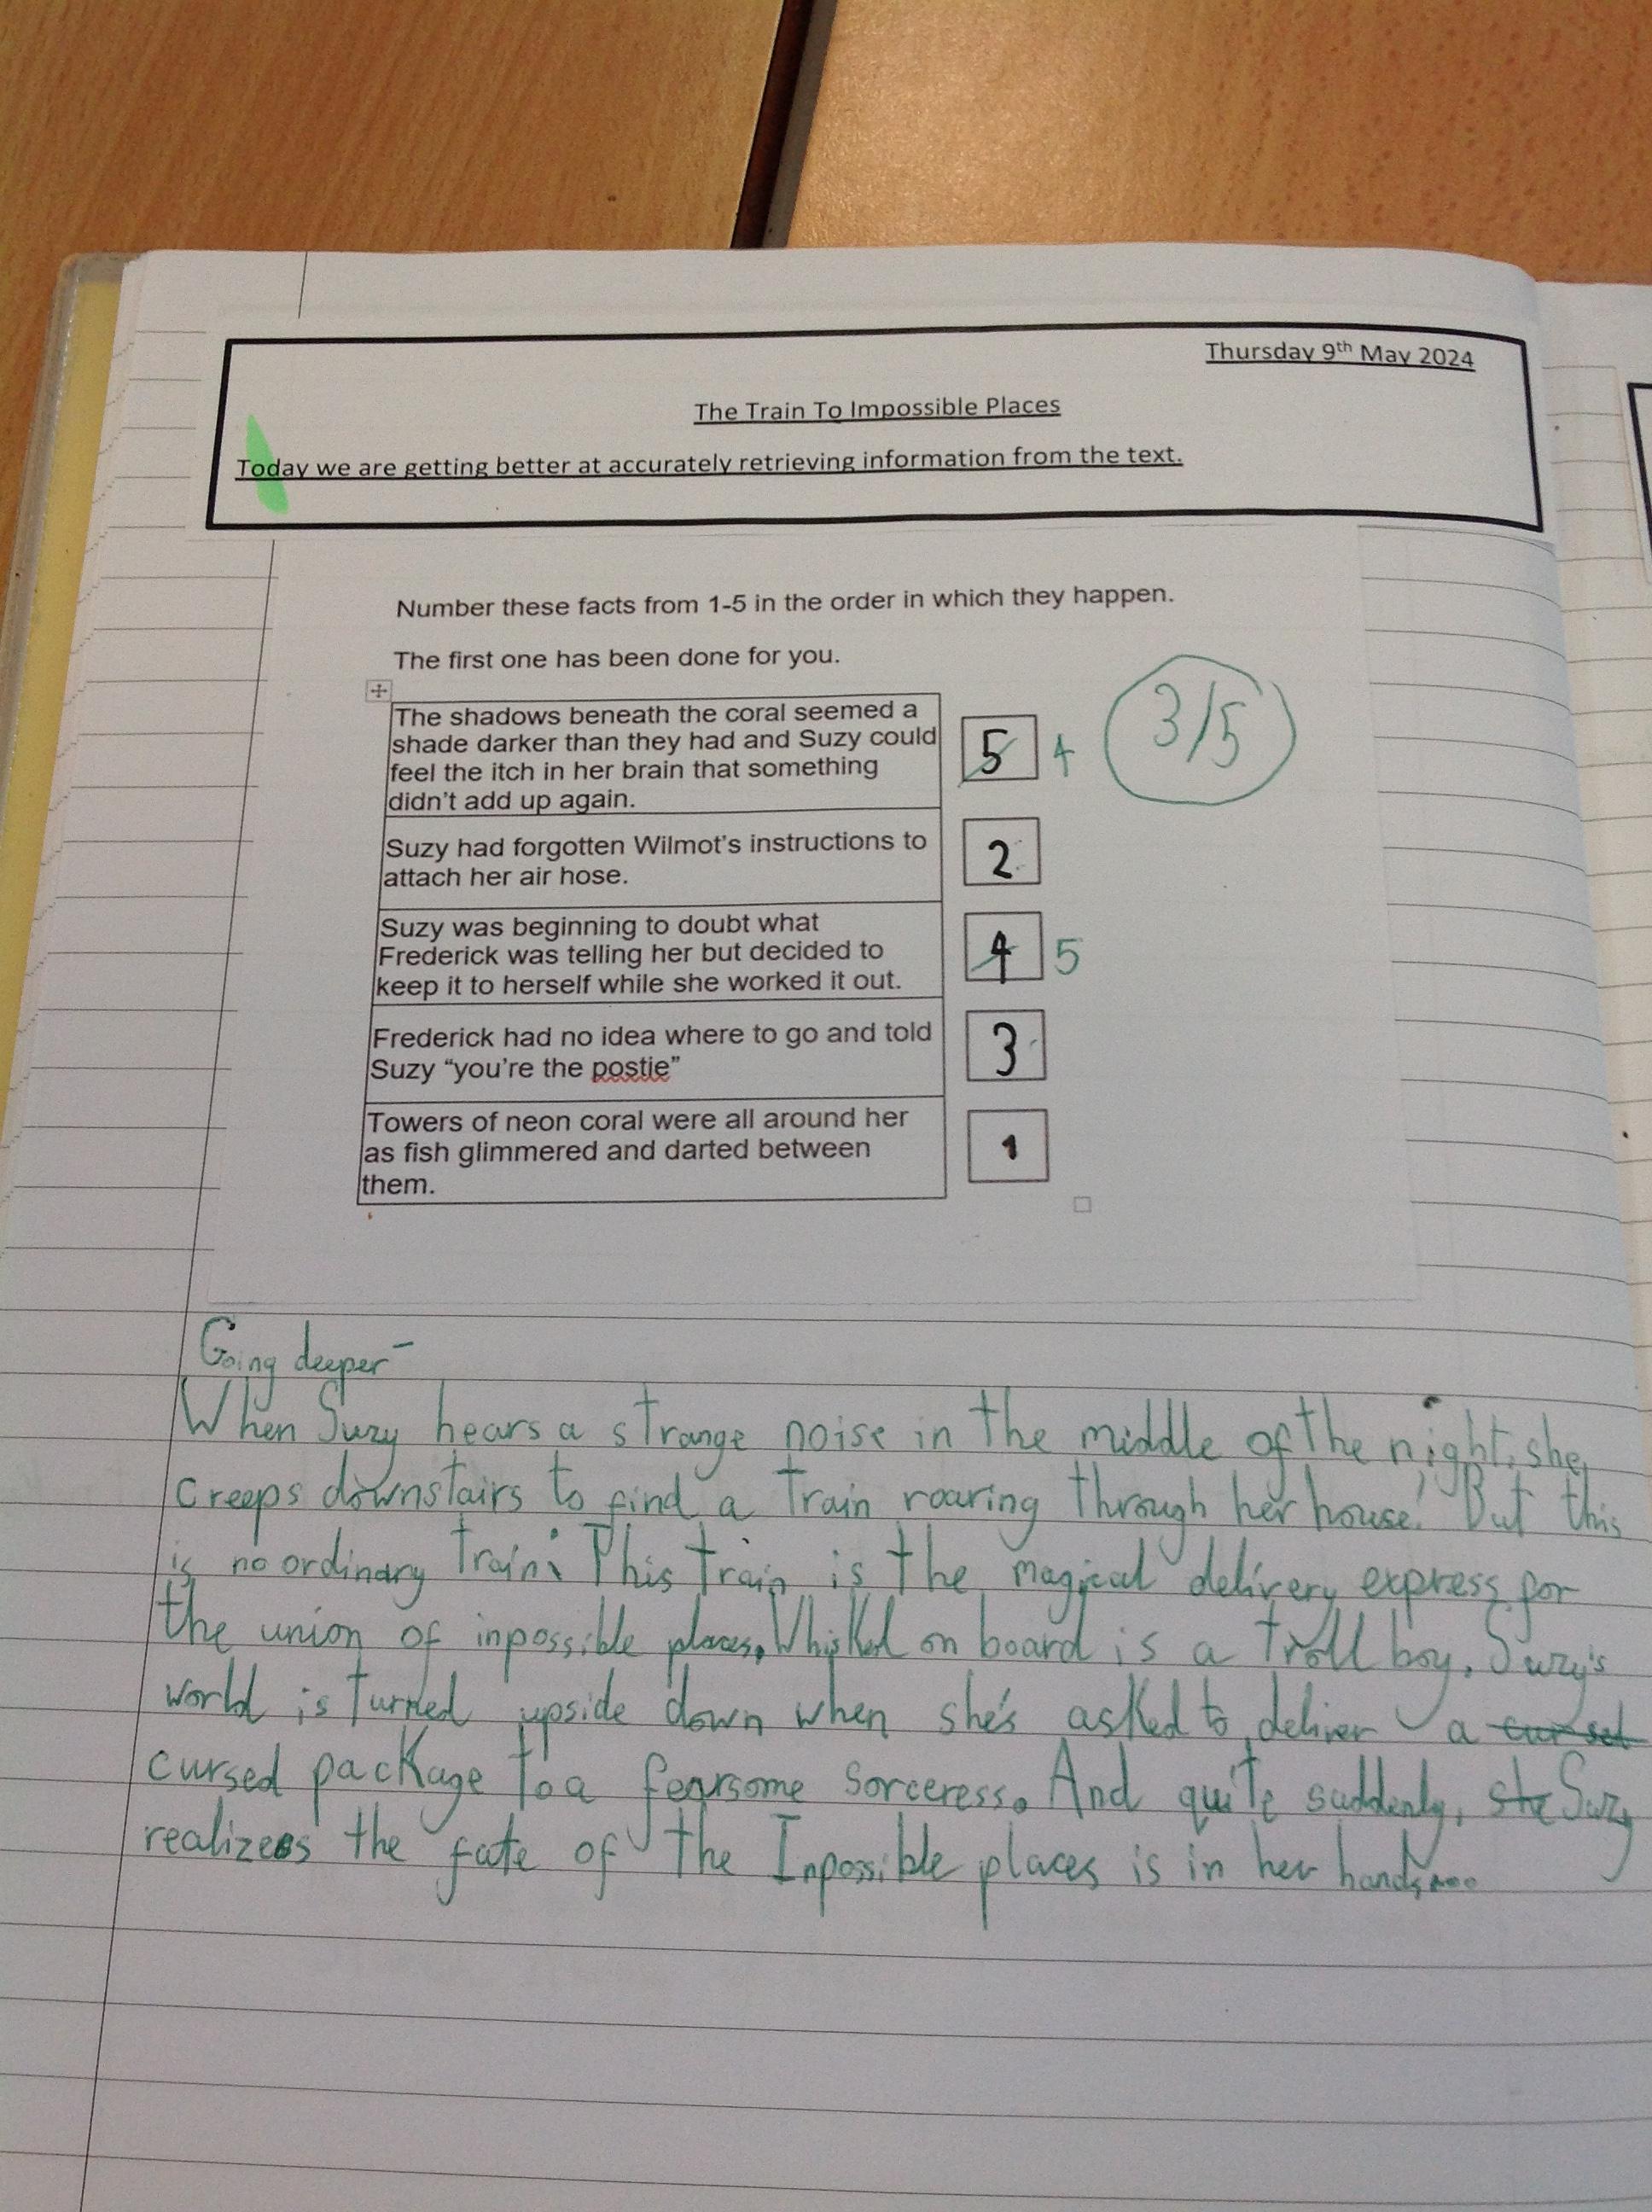 Thursday 9th May 2024
The Train To Impossible Places
Today we are getting better at accurately retrieving information from the text.
Number these facts from 1-5 in the order in which they happen.
The first one has been done for you.
3/5
The shadows beneath the coral seemed a
shade darker than they had and Suzy could
feel the itch in her brain that something
didn't add up again.
5 4
Suzy had forgotten Wilmot's instructions to
attach her air hose.
2
Suzy was beginning to doubt what
Frederick was telling her but decided to
keep it to herself while she worked it out.
4 5
Frederick had no idea where to go and told
Suzy “you're the postie”
3
Towers of neon coral were all around her
as fish glimmered and darted between
them.
1
Going deeper -
When Suzy hears a strange noise in the middle of the night, she
creeps downstairs to find a train roaring through her house! But this
is no ordinary train: This train is the magical delivery express for
the union of inpossible places. Whisked on board is a troll boy, Suzy's
world is turned upside down when she's asked to deliver a cursed
cursed package to a fearsome sorceress. And quite suddenly, she Suzy
realizes the fate of the Inpossible places is in her hands...